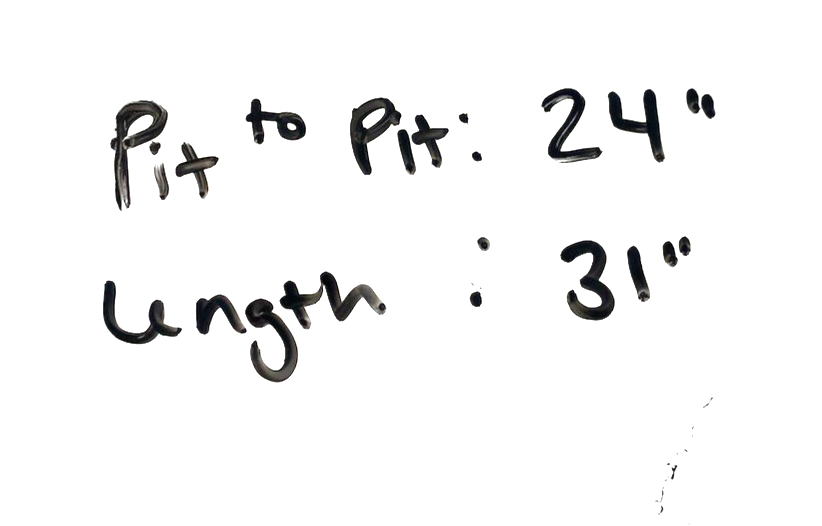 Pit to Pit: 24"
Length : 31"